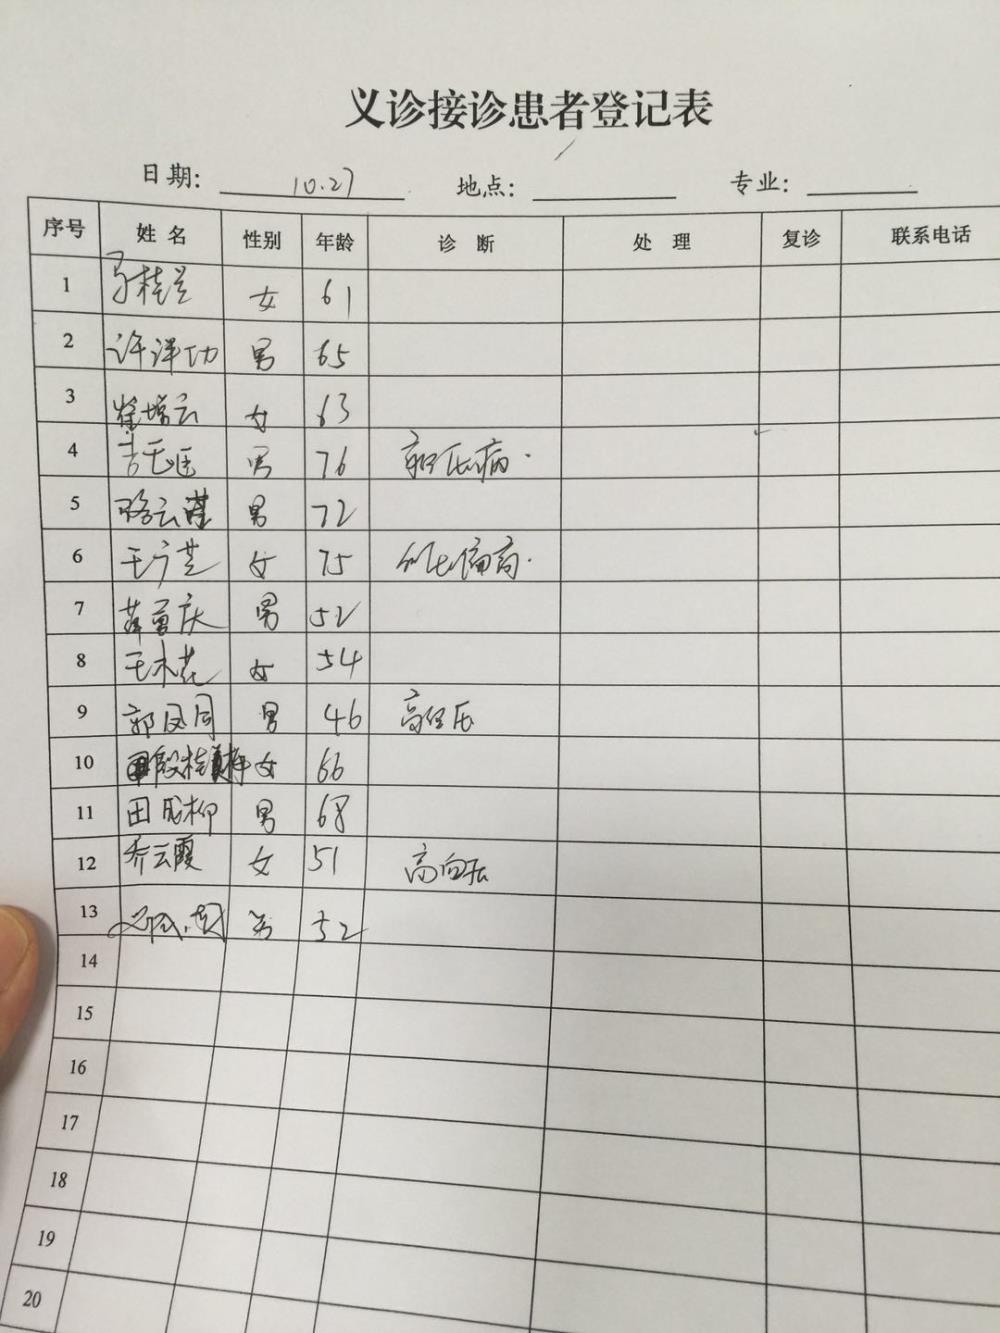 义诊接诊患者登记表
日期: 10.27 地点: 专业:
序号 姓名 性别 年龄 诊断 处理 复诊 联系电话
1 女 61
2 许洋功 男 65
3 女 63
4 男 76
5 骆云 男 72
6 王广芝 女 75
7 薛勇庆 男 52
8 王木花 女 54
9 郭凤同 男 46 高血压
10 段桂 女 66
11 田成柳 男 68
12 乔云霞 女 51 高血压
13 男 52
14
15
16
17
18
19
20